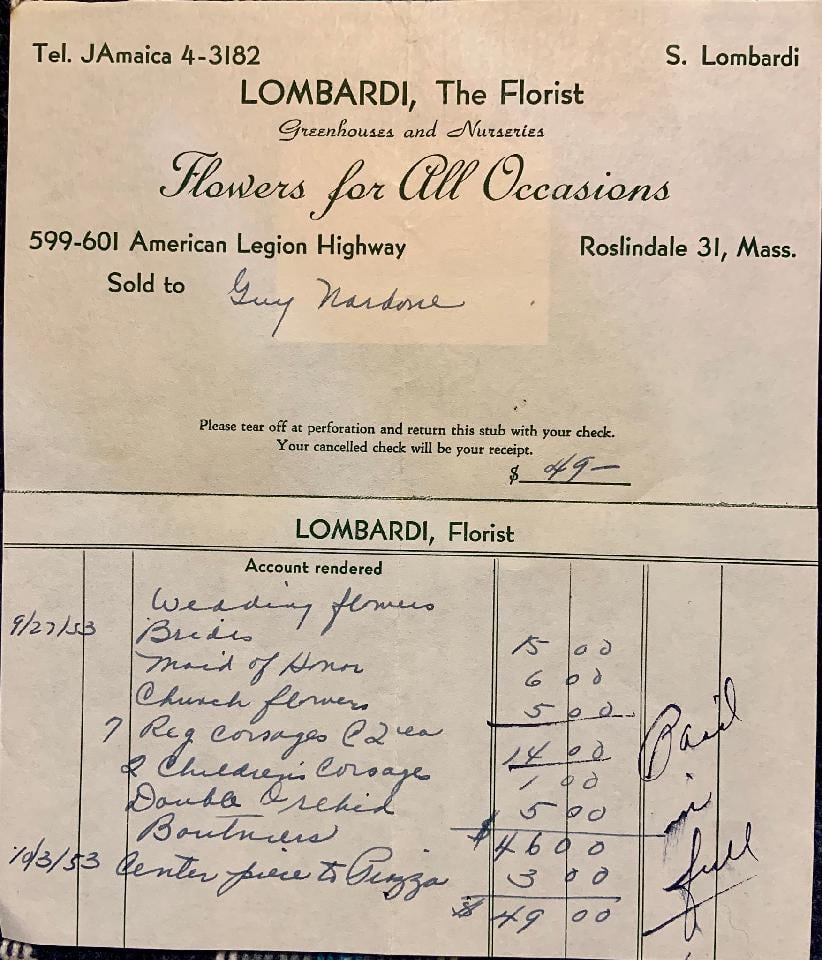 Tel. JAmaica 4-3182 S. Lombardi
LOMBARDI, The Florist
Greenhouses and Nurseries
Flowers for All Occasions
599-601 American Legion Highway Roslindale 31, Mass.
Sold to Guy Nardone
Please tear off at perforation and return this stub with your check.
Your cancelled check will be your receipt.
$ 49—
LOMBARDI, Florist
Account rendered
Wedding flowers
9/27/53 Brides 15 00
Maid of Honor 6 00
Church flowers 5 00
7 Reg Corsages @ 2 ea 14 00
2 Children's Corsages 1 00
Double Orchid 5 00
Boutniers $ 46 00
10/3/53 Center piece to 3 00
$ 49 00
Paid
in
full